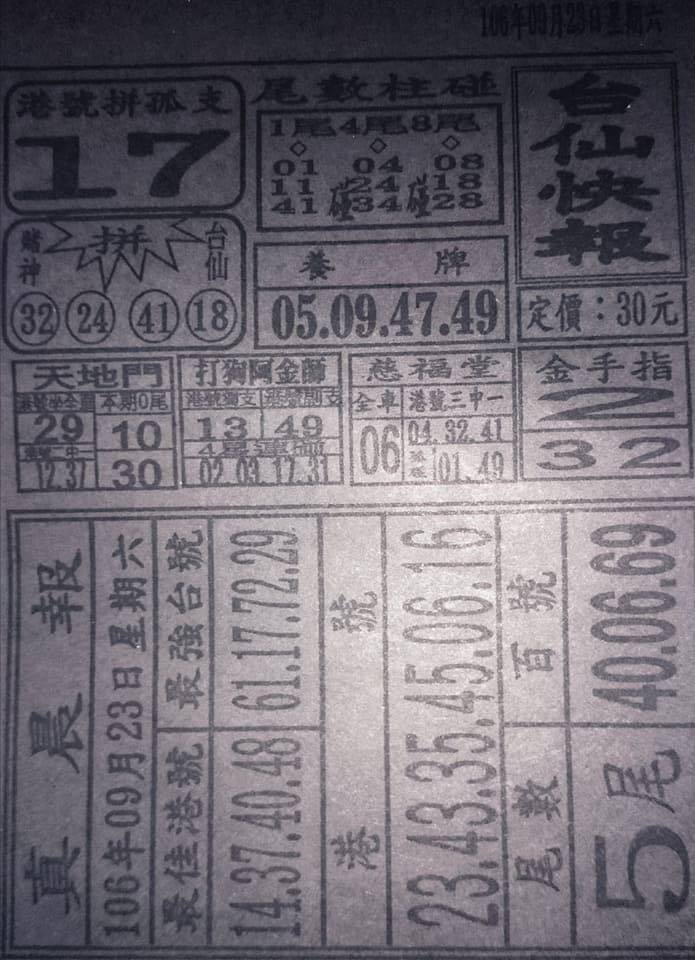 106年09月23日星期六
港號拼孤支
17
尾數柱碰
1尾4尾8尾
01 04 08
11 碰 24 碰 18
41 34 28
台仙快報
定價：30元
賭神 拼 台仙
32 24 41 18
養牌
05.09.47.49
天地門
本期0尾
29 10
12.37 30
打狗阿金師
港號獨支 港號副支
13 49
02.03.17.31
慈福堂
全車 港號三中一
06 04.32.41
01.49
金手指
2
32
真晨報
106年09月23日星期六
最佳港號 最強台號
14.37.40.48 61.17.72.29
港號
23.43.35.45.06.16
尾數 百號
5尾 40.06.69